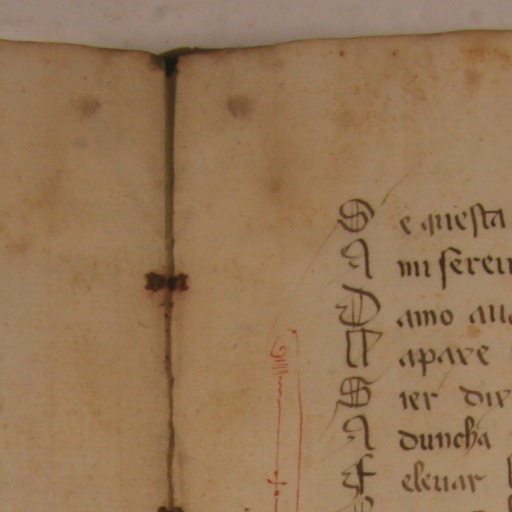 S e questa
A mi seren
D amo aua
M apare
S ier dir
A duncha
F eleuar